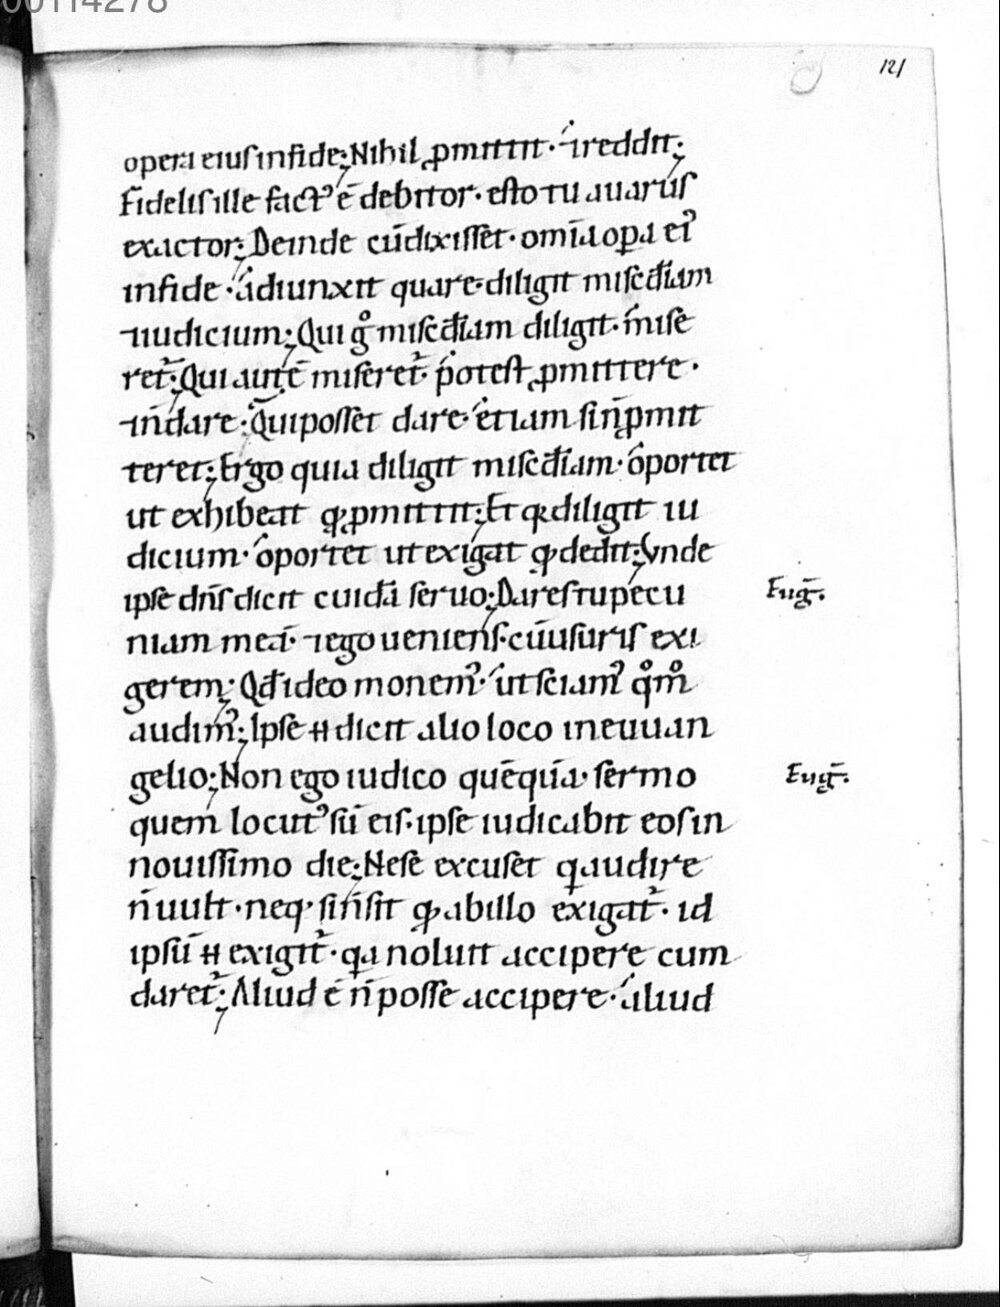 00114278
121
opera eius in fide; Nihil ꝓmittit · ⁊ reddit;
Fidelis ille factꝰ ē debitor · esto tu auarus
exactor; Deinde cū dixisset · om̄ia oꝑa eiꝰ
in fide · adiunxit quare · diligit misc̄diam
⁊ iudicium; Qui gͦ misc̄diam diligit · mise
ret᷑; Qui autē miseret᷑ · potest ꝓmittere ·
⁊ n̄ dare; Qui posset dare · etiam si n̄ ꝓmit
teret; Ergo quia diligit misc̄diam · oportet
ut exhibeat qđ ꝓmittit; Et qa diligit iu
dicium · oportet ut exigat qđ dedit; Unde
ipse dn̄s dicit cuidā seruo; Dares tu pecu
Euḡ.
niam meā · ⁊ ego ueniens · cū usuris exi
gerem; Qđ ideo monemꝰ · ut sciamꝰ qͦmͦ
audimꝰ; Ipse n̄ dicit alio loco in euuan
gelio; Non ego iudico quēquā · sermo
Euḡ.
quem locutꝰ sū eis · ipse iudicabit eos in
nouissimo die; Ne se excuset q audire
n̄ uult · neqꝫ si n̄ sit qđ ab illo exigat᷑ · id
ipsū n̄ exigit᷑ · qa noluit accipere cum
daret᷑; Aliud ē n̄ posse accipere · aliud